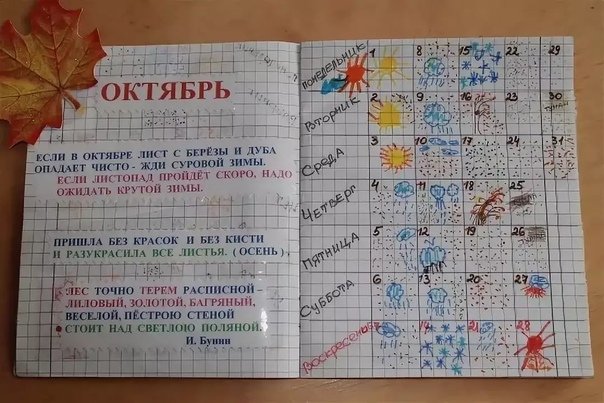 ОКТЯБРЬ
ЕСЛИ В ОКТЯБРЕ ЛИСТ С БЕРЁЗЫ И ДУБА
ОПАДАЕТ ЧИСТО - ЖДИ СУРОВОЙ ЗИМЫ.
ЕСЛИ ЛИСТОПАД ПРОЙДЁТ СКОРО, НАДО
ОЖИДАТЬ КРУТОЙ ЗИМЫ.
ПРИШЛА БЕЗ КРАСОК И БЕЗ КИСТИ
И РАЗУКРАСИЛА ВСЕ ЛИСТЬЯ. (ОСЕНЬ)
ЛЕС ТОЧНО ТЕРЕМ РАСПИСНОЙ –
ЛИЛОВЫЙ, ЗОЛОТОЙ, БАГРЯНЫЙ,
ВЕСЕЛОЙ, ПЁСТРОЮ СТЕНОЙ
СТОИТ НАД СВЕТЛОЮ ПОЛЯНОЙ.
И. Бунин
ПОНЕДЕЛЬНИК 1 8 15 22 29
ВТОРНИК 2 9 16 23 30
СРЕДА 3 10 17 24 31
ЧЕТВЕРГ 4 11 18 25
ПЯТНИЦА 5 12 19 26
СУББОТА 6 13 20 27
ВОСКРЕСЕНЬЕ 14 21 28